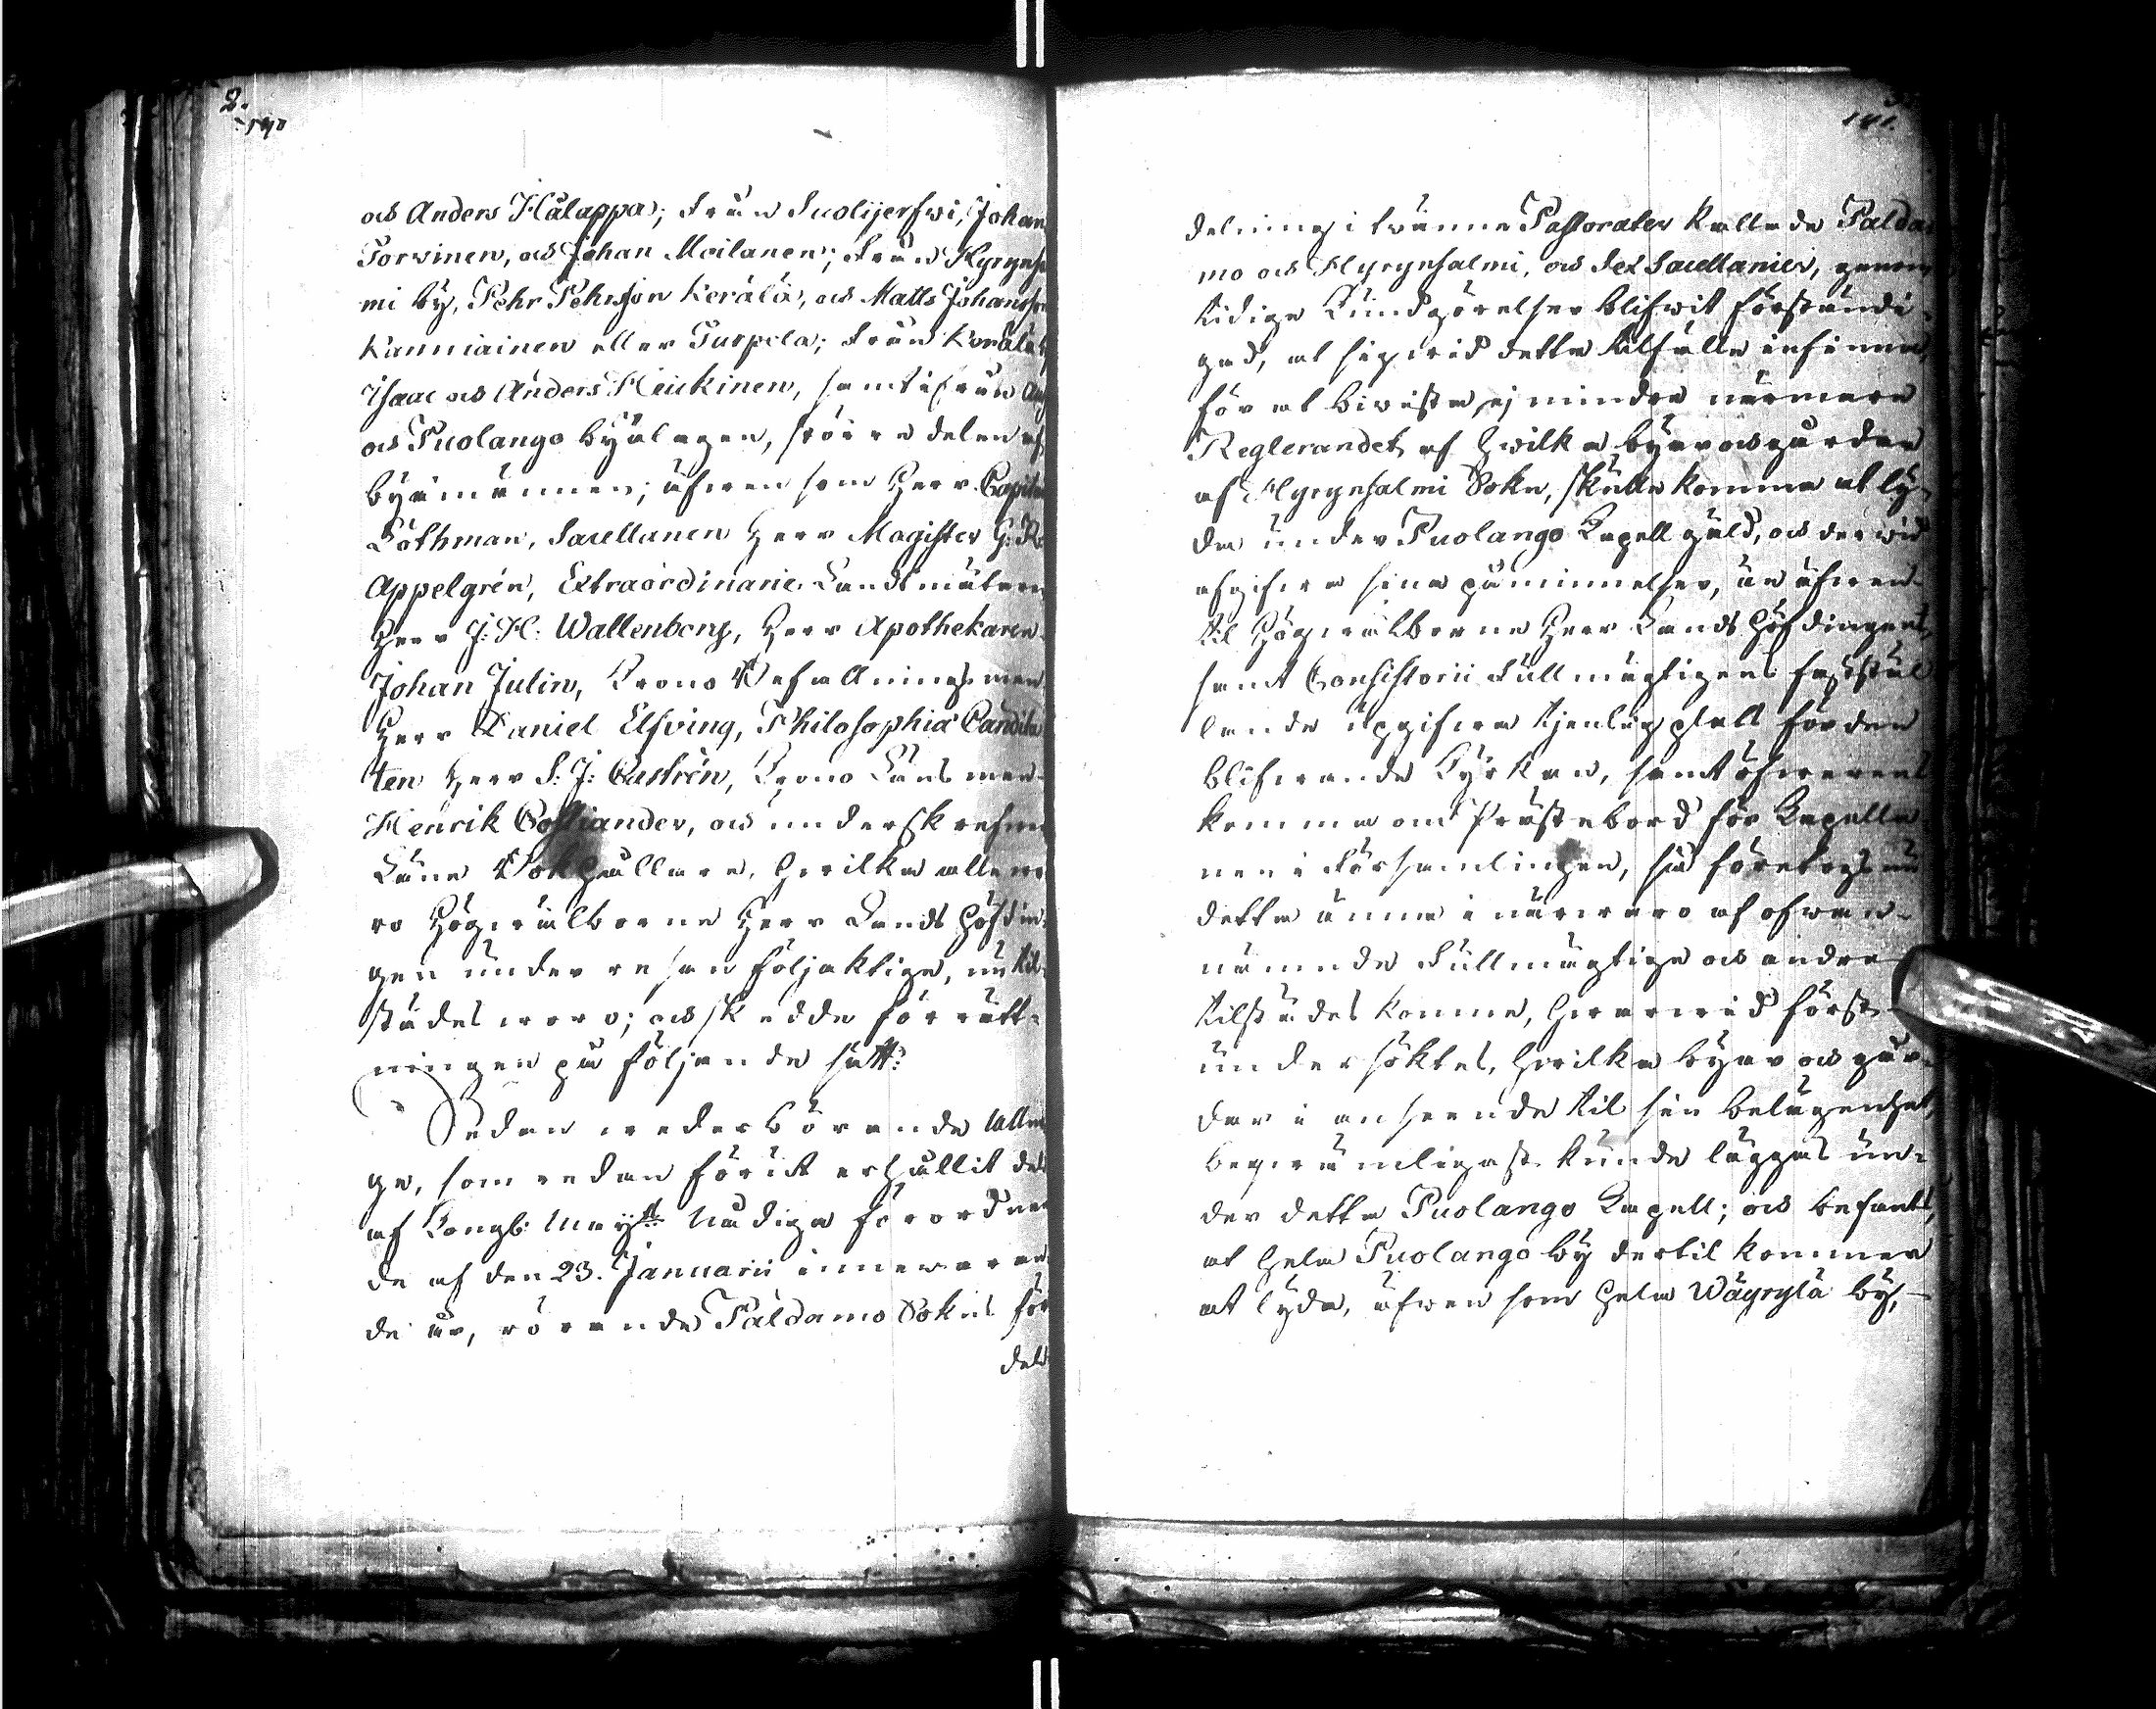 2.
140
och Anders Hälappa; från Suolijerfwi, Johan
Torvinen, och Johan Moilanen; från Hyrynsa
mi by, Pehr Pehrsson Kerälä, och Matts Johansson
Kanniainen eller Turpela; från Kerälä
Isaac och Anders Heickinen, samt ifrån
och Puolango byälagen, större delen af
byämännen; äfwen som Herr Capit
Löthman, Sacellanen Herr Magister G: R:
Appelgrén, Extraordinarie Landtmätern
Herr J: H: Wallenborg, Herr Apothekaren
Johan Julin, Crono Befallningsman
Herr Daniel Elfving, Philosophiæ Candida
ten Herr S: J: Castrén, Crono Länsman
Henrik Costiander, och underskrefne
Läne Bokhållare, hwilka alle wo
ro Högwälborne Herr Lands Höfdin
gen under resan följaktige, nu til
städes woro; och skedde förrätt-
ningen på följande sätt:
Sedan wederbörande Allmo
ge, som redan förut erhållit del
af Kongl: May:ts Nådiga förordnan
de af den 23. Januarii innewaran
de år, rörande Paldamo Sokns för
delt
141.
delning i twänne Pastorater kallade Palda
mo och Hyrynsalmi, och sex Sacellanier, genom
tidige Kundgörelser blifwit förständi-
gad, at sig wid detta tilfälle infinna,
för at biwista ej mindre närmare
Reglerandet af hwilka byar och gårdar
af Hyrynsalmi Sokn, skulle komma at ly-
da under Puolango Capell gäld, och derwid
afgifwa sina påminnelser, än äfwen
til Högwälborne Herr Lands Höfdingens,
samt Consistorii Fullmägtigens faststäl
lande upgifwa tjenlig plats för den
blifwande Kyrkan, samt öfwerens
komma om Prästebord för Capella
nen i Församlingen, så företogs nu
detta ämne i närwaro af ofwan-
nämnde Fullmägtige och andre
tilstädes komne, hwarwid först
undersöktes, hwilka byar och går-
dar i anseende til sin belägenhet
beqwämligast kunde läggas un-
der detta Puolango Capell; och befants,
at hela Puolango by dertil kommer
at lyda, äfwen som hela Wäyrylä by,